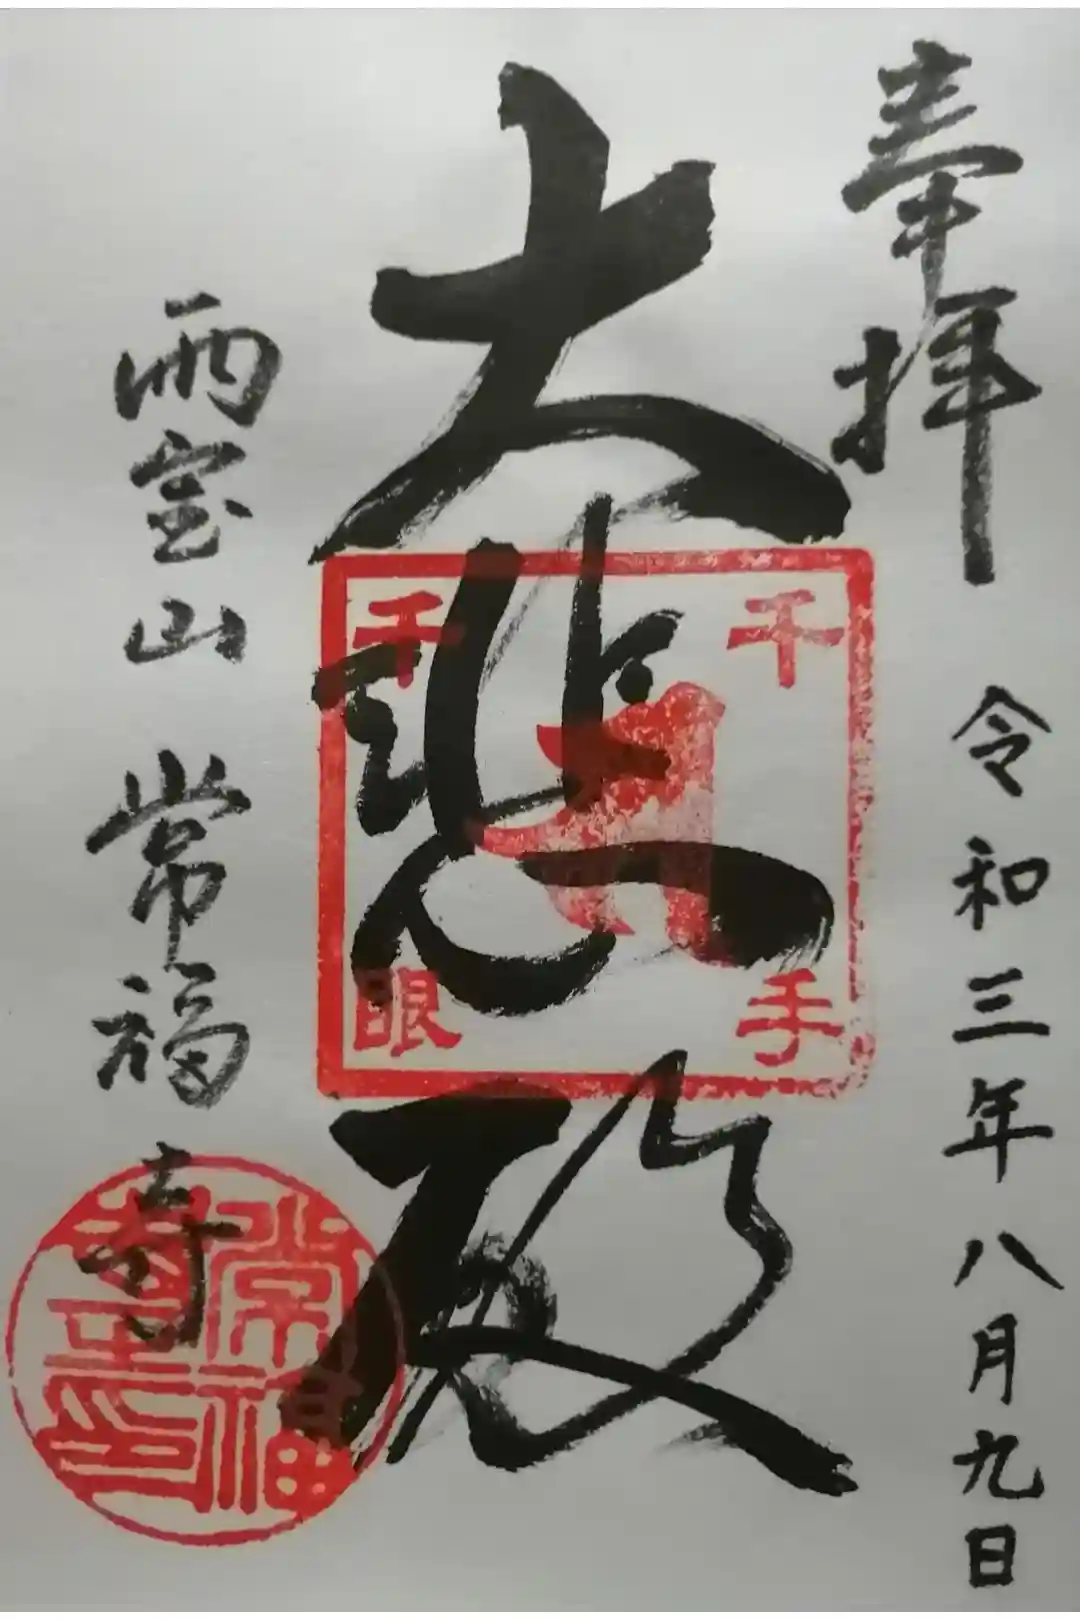 奉拝
令和三年八月九日
大悲殿
千手
千眼
雨宝山 常福寺
常福
寺主印